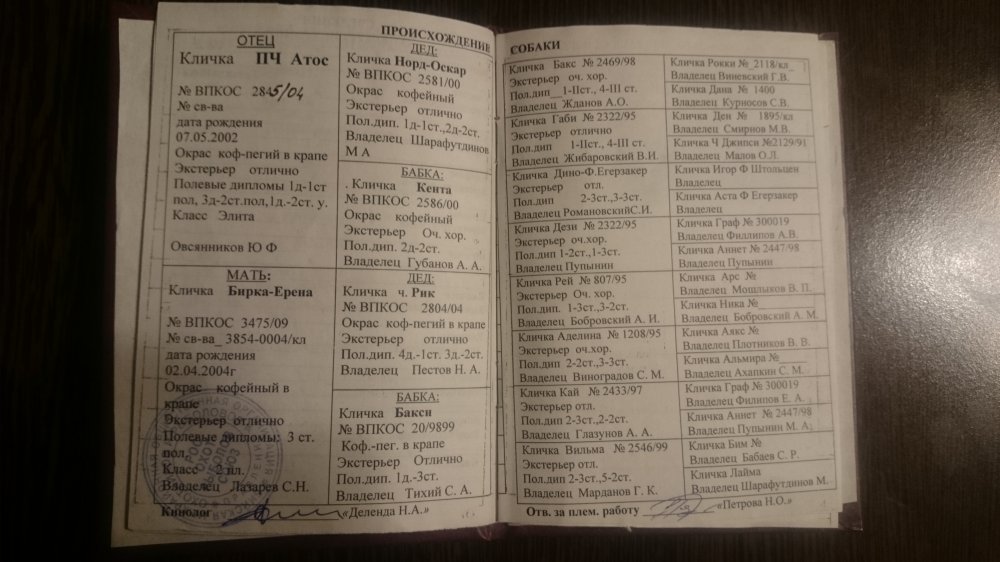 ПРОИСХОЖДЕНИЕ
ОТЕЦ
Кличка ПЧ Атос
№ ВПКОС 2845/04
№ св-ва
дата рождения
07.05.2002
Окрас коф-пегий в крапе
Экстерьер отлично
Полевые дипломы 1д-1ст
пол, 3д-2ст.пол,1д.-2ст. у.
Класс Элита
Овсянников Ю Ф
МАТЬ:
Кличка Бирка-Ерена
№ ВПКОС 3475/09
№ св-ва_ 3854-0004/кл
дата рождения
02.04.2004г
Окрас кофейный в
крапе
Экстерьер отлично
Полевые дипломы: 3 ст.
пол.
Класс 2 пл.
Владелец Лазарев С.Н.
ДЕД:
Кличка Норд-Оскар
№ ВПКОС 2581/00
Окрас кофейный
Экстерьер отлично
Пол.дип. 1д-1ст.,2д-2ст.
Владелец Шарафутдинов
М А
БАБКА:
. Кличка Кента
№ ВПКОС 2586/00
Окрас кофейный
Экстерьер Оч. хор.
Пол.дип. 2д-2ст.
Владелец Губанов А. А.
ДЕД:
Кличка ч. Рик
№ ВПКОС 2804/04
Окрас коф-пегий в крапе
Экстерьер отлично
Пол.дип. 4д.-1ст. 3д.-2ст.
Владелец Пестов Н. А.
БАБКА:
Кличка Бакси
№ ВПКОС 20/9899
Коф.-пег. в крапе
Экстерьер Отлично
Пол.дип. 1д.-3ст.
Владелец Тихий С. А.
Кинолог «Деленда Н.А.»
СОБАКИ
Кличка Бакс № 2469/98
Экстерьер оч. хор.
Пол.дип__1-IIст., 4-III ст.
Владелец Жданов А.О.
Кличка Габи № 2322/95
Экстерьер отлично
Пол.дип 1-IIст., 4-III ст.
Владелец Жибаровский В.И.
Кличка Дино-Ф.Егерзакер
Экстерьер отл.
Пол.дип 2-3ст.,3-3ст.
Владелец РомановскийС.И.
Кличка Дези № 2322/95
Экстерьер оч.хор.
Пол.дип 1-2ст.,1-3ст.
Владелец Пупынин
Кличка Рей № 807/95
Экстерьер Оч. хор.
Пол.дип. 1-3ст.,3-2ст.
Владелец Бобровский А. И.
Кличка Аделина № 1208/95
Экстерьер оч.хор.
Пол.дип 2-2ст.,3-3ст.
Владелец Виноградов С. М.
Кличка Кай № 2433/97
Экстерьер отл.
Пол.дип 2-3ст.,2-2ст.
Владелец Глазунов А. А.
Кличка Вильма № 2546/99
Экстерьер отл.
Пол.дип 2-3ст.,5-2ст.
Владелец Марданов Г. К.
Кличка Рокки №_2118/кл_
Владелец Виневский Г.В.
Кличка Дана № 1400
Владелец Курносов С.В.
Кличка Ден № 1895/кл
Владелец Смирнов М.В.
Кличка Ч Джипси №2129/91
Владелец Малов О.Л.
Кличка Игор Ф Штольцен
Владелец
Кличка Аста Ф Егерзакер
Владелец
Кличка Граф № 300019
Владелец Филлипов А.В.
Кличка Аннет № 2447/98
Владелец Пупынин
Кличка Арс №
Владелец Мошлыков В. П.
Кличка Ника №
Владелец Бобровский А. М.
Кличка Аякс №
Владелец Плотников В. В.
Кличка Альмира №
Владелец Ахапкин С. М.
Кличка Граф № 300019
Владелец Филипов Е. А.
Кличка Аннет № 2447/98
Владелец Пупынин М. А.
Кличка Бим №
Владелец Бабаев С. Р.
Кличка Лайма
Владелец Шарафутдинов М.
Отв. за плем. работу «Петрова Н.О.»